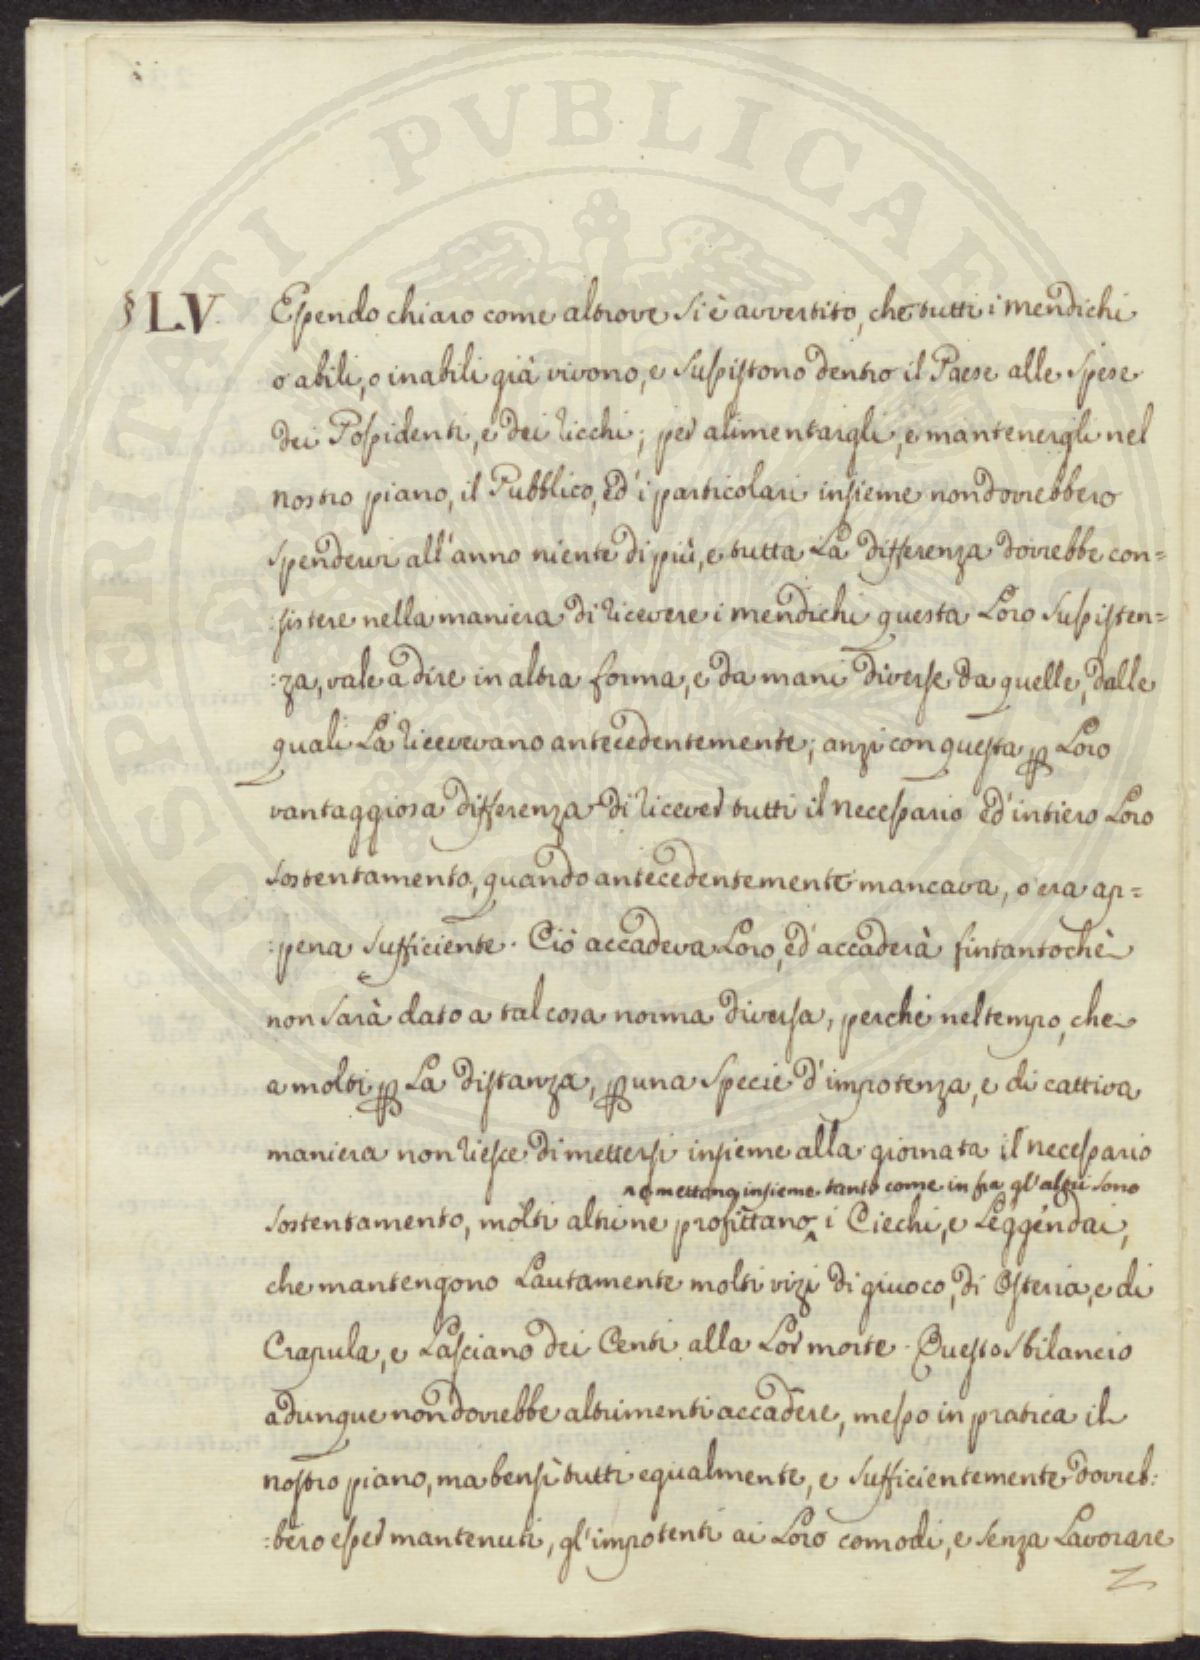 PROSPERITATI PUBLICAE
§ LV. Essendo chiaro come altrove si è avvertito, che tutti i mendichi
o abili, o inabili già vivono, e sussistono dentro il Paese alle spese
dei Possidenti, e dei ricchi; per alimentargli, e mantenergli nel
nostro piano, il Pubblico, ed' i particolari insieme non dovrebbero
spendervi all'anno niente di più, e tutta la differenza dovrebbe con=
:sistere nella maniera di ricevere i mendichi questa loro sussisten=
:za, vale a dire in altra forma, e da mani diverse da quelle, dalle
quali la ricevevano antecedentemente; anzi con questa p loro
vantaggiosa differenza di ricever tutti il necessario ed' intiero loro
sostentamento, quando antecedentemente mancava, o era ap=
:pena sufficiente. Ciò accadeva loro, ed' accaderà fintantochè
non sarà dato a tal cosa norma diversa, perchè nel tempo, che
a molti p la distanza, p una specie d'impotenza, e di cattiva
maniera non riesce di mettersi insieme alla giornata il necessario
e mettono insieme tanto come in fra gl'altri sono
sostentamento, molti altri ne profittano i Ciechi, e Leggendai,
che mantengono lautamente molti vizi di giuoco, di Osteria, e di
Crapula, e lasciano dei Centi alla lor morte. Questo sbilancio
adunque non dovrebbe altrimenti accadere, messo in pratica il
nostro piano, ma bensì tutti egualmente, e sufficientemente dovreb:
:bero esser mantenuti, gl'impotenti ai loro comodi, e senza lavorare